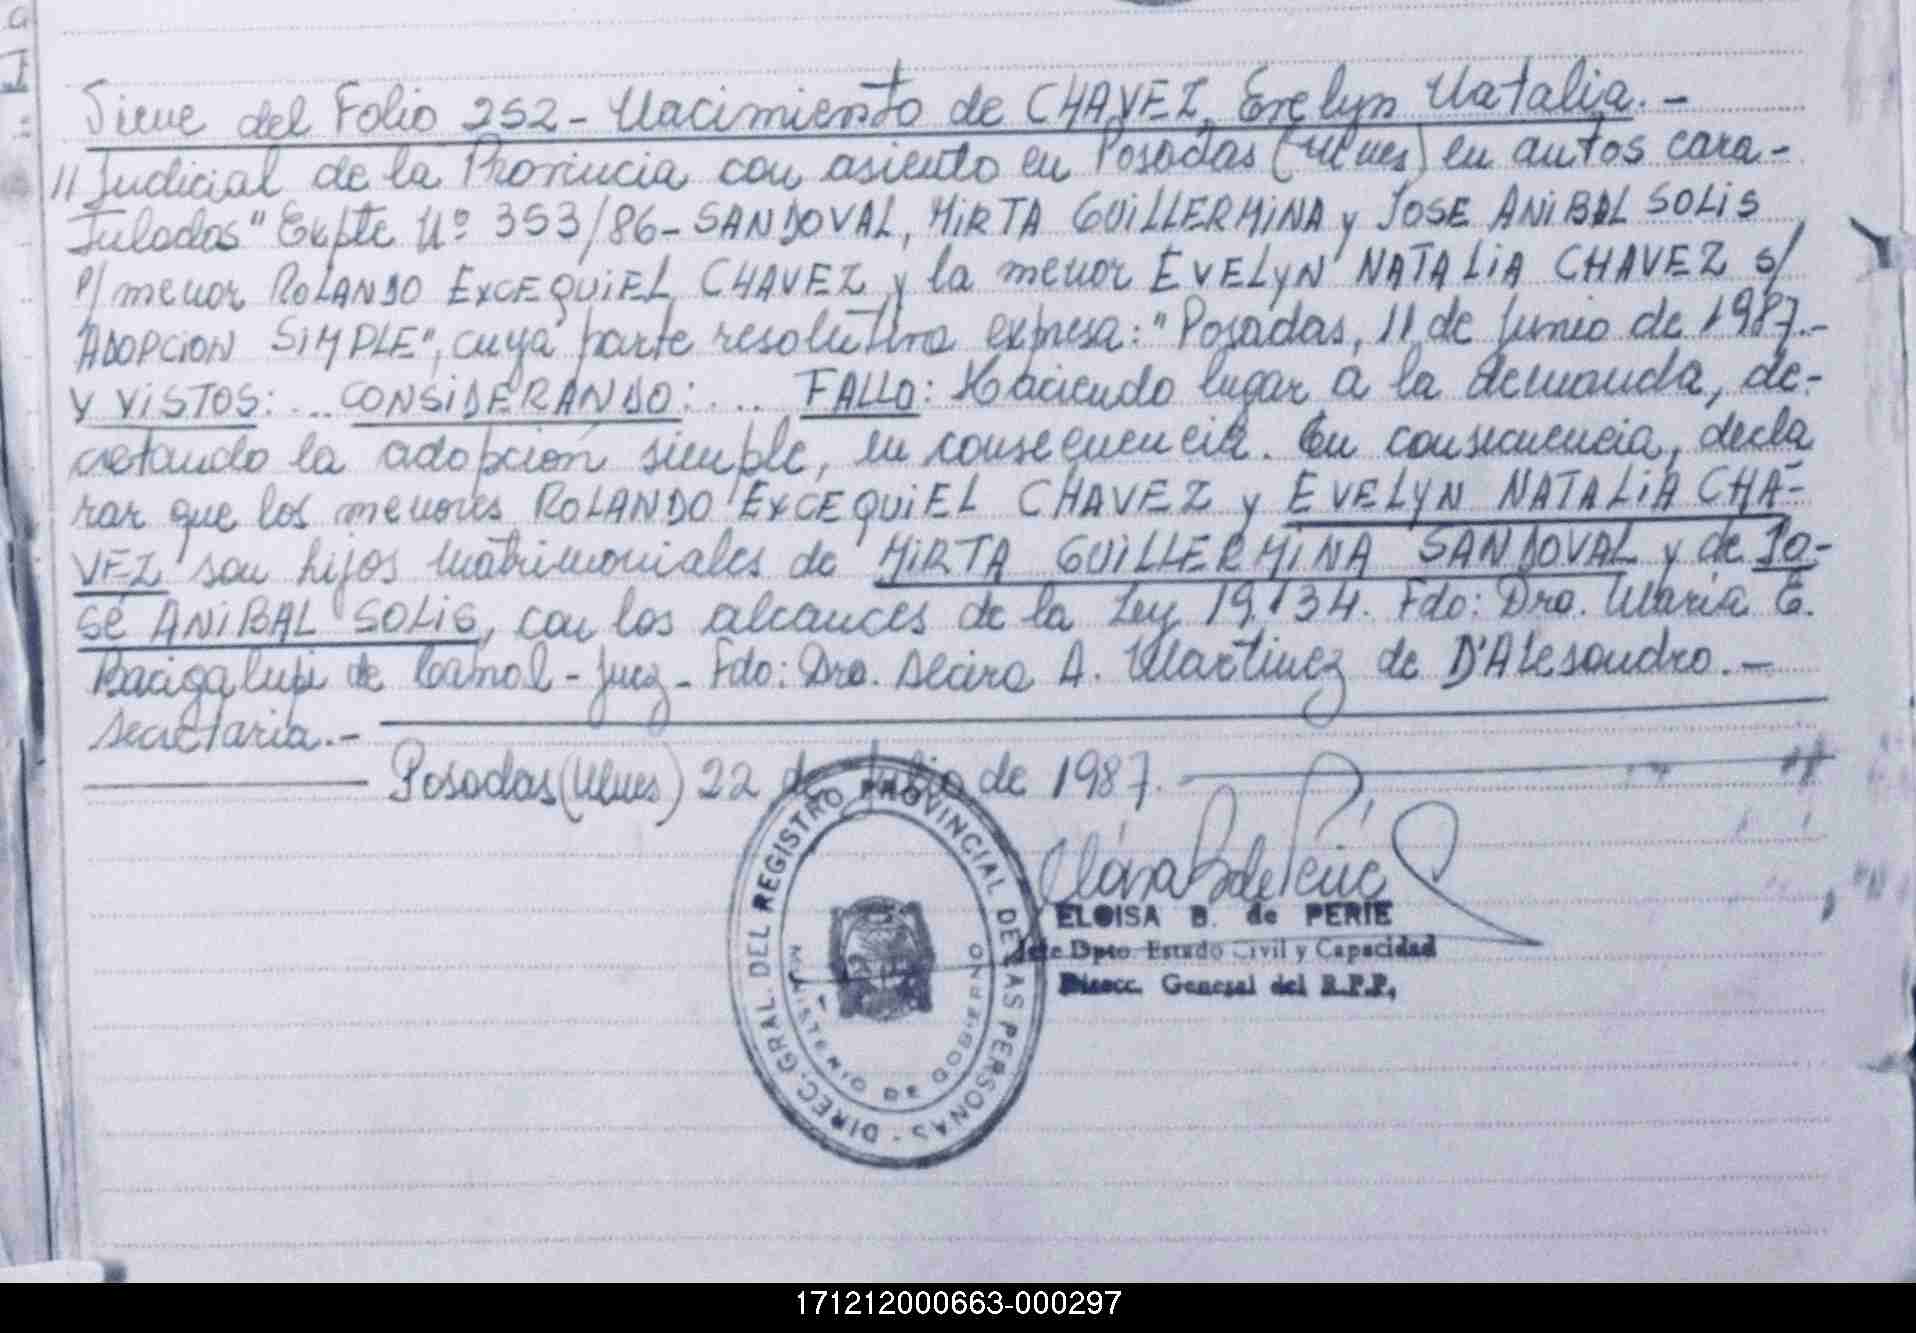 Viene del Folio 252 - Nacimiento de CHAVEZ, Evelyn Natalia. -
// Judicial de la Provincia con asiento en Posadas (Mnes) en autos cara-
tulados "Expte Nº 353/86 - SANDOVAL, MIRTA GUILLERMINA y JOSE ANIBAL SOLIS
p/ menor ROLANDO EXCEQUIEL CHAVEZ y la menor EVELYN NATALIA CHAVEZ s/
ADOPCION SIMPLE", cuya parte resolutiva expresa: "Posadas, 11 de Junio de 1987.-
Y VISTOS: ... CONSIDERANDO: ... FALLO: Haciendo lugar a la demanda, de-
cretando la adopción simple, en consecuencia. En consecuencia, decla
rar que los menores ROLANDO EXCEQUIEL CHAVEZ y EVELYN NATALIA CHA-
VEZ son hijos matrimoniales de MIRTA GUILLERMINA SANDOVAL y de JO-
SÉ ANIBAL SOLIS, con los alcances de la Ley 19.134. Fdo: Dra. María E.
Bacigalupi de - Juez - Fdo: Dra. Alcira A. Martinez de D'Alesandro. -
secretaria. -
Posadas (Mnes) 22 de Julio de 1987.
DIREC. GRAL. DEL REGISTRO PROVINCIAL DE LAS PERSONAS -
MINISTERIO DE GOBIERNO
ELOISA B. de PERIE
Jefe Dpto. Estado Civil y Capacidad
Direcc. General del R.P.P.
171212000663-000297